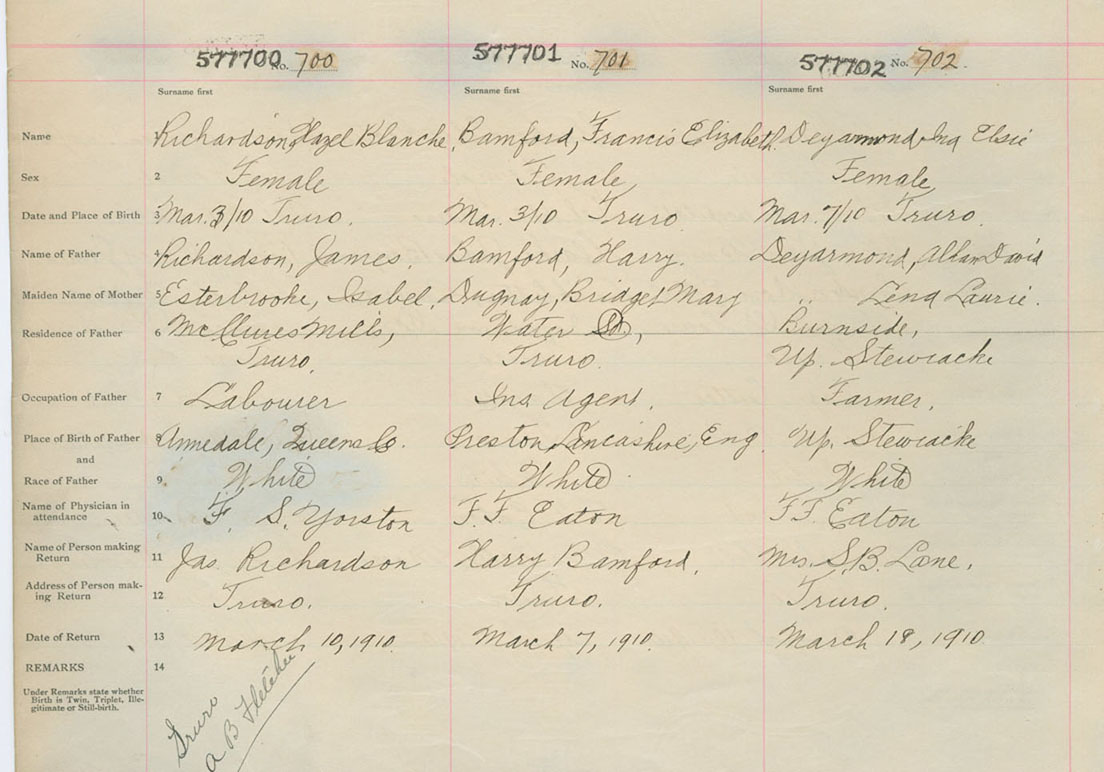 577700 No. 700 577701 No. 701 577702 No. 702
Surname first Surname first Surname first
Name Richardson, Hazel Blanche Bamford, Francis Elizabeth Deyarmond Ina Elsie
Sex 2 Female Female, Female,
Date and Place of Birth 3 Mar. 3/10 Truro. Mar. 3/10 Truro Mar. 7/10 Truro.
Name of Father 4 Richardson, James, Bamford, Harry. Deyarmond, Allan David
Maiden Name of Mother 5 Esterbrooke, Isabel, Dugnay, Bridget Mary " Lena Laurie.
Residence of Father 6 McClures Mills, Water St, Burnside,
Truro, Truro. Up. Stewiacke
Occupation of Father 7 Labourer Ins Agent. Farmer,
Place of Birth of Father Annedale, Queens Co. Preston, Lancashire, Eng. Up. Stewiacke
and
Race of Father 9 White White White
Name of Physician in
attendance 10 F. S. Yorston F. F. Eaton F F. Eaton
Name of Person making
Return 11 Jas. Richardson Harry Bamford, Mrs. S. B. Lane,
Address of Person mak-
ing Return 12 Truro. Truro. Truro.
Date of Return 13 March 10, 1910. March 7, 1910. March 18, 1910.
REMARKS 14
Under Remarks state whether
Birth is Twin, Triplet, Ille-
gitimate or Still-birth.
Truro
A B Fletcher